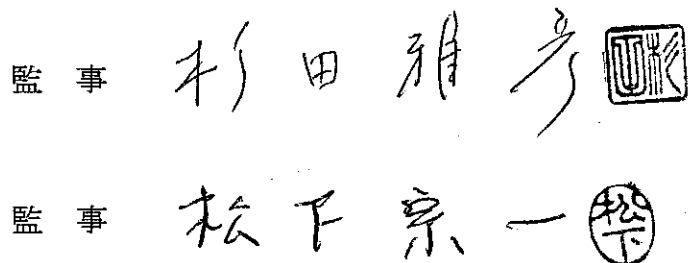 監事 杉田雅彦 杉田
監事 松下宗一 松下